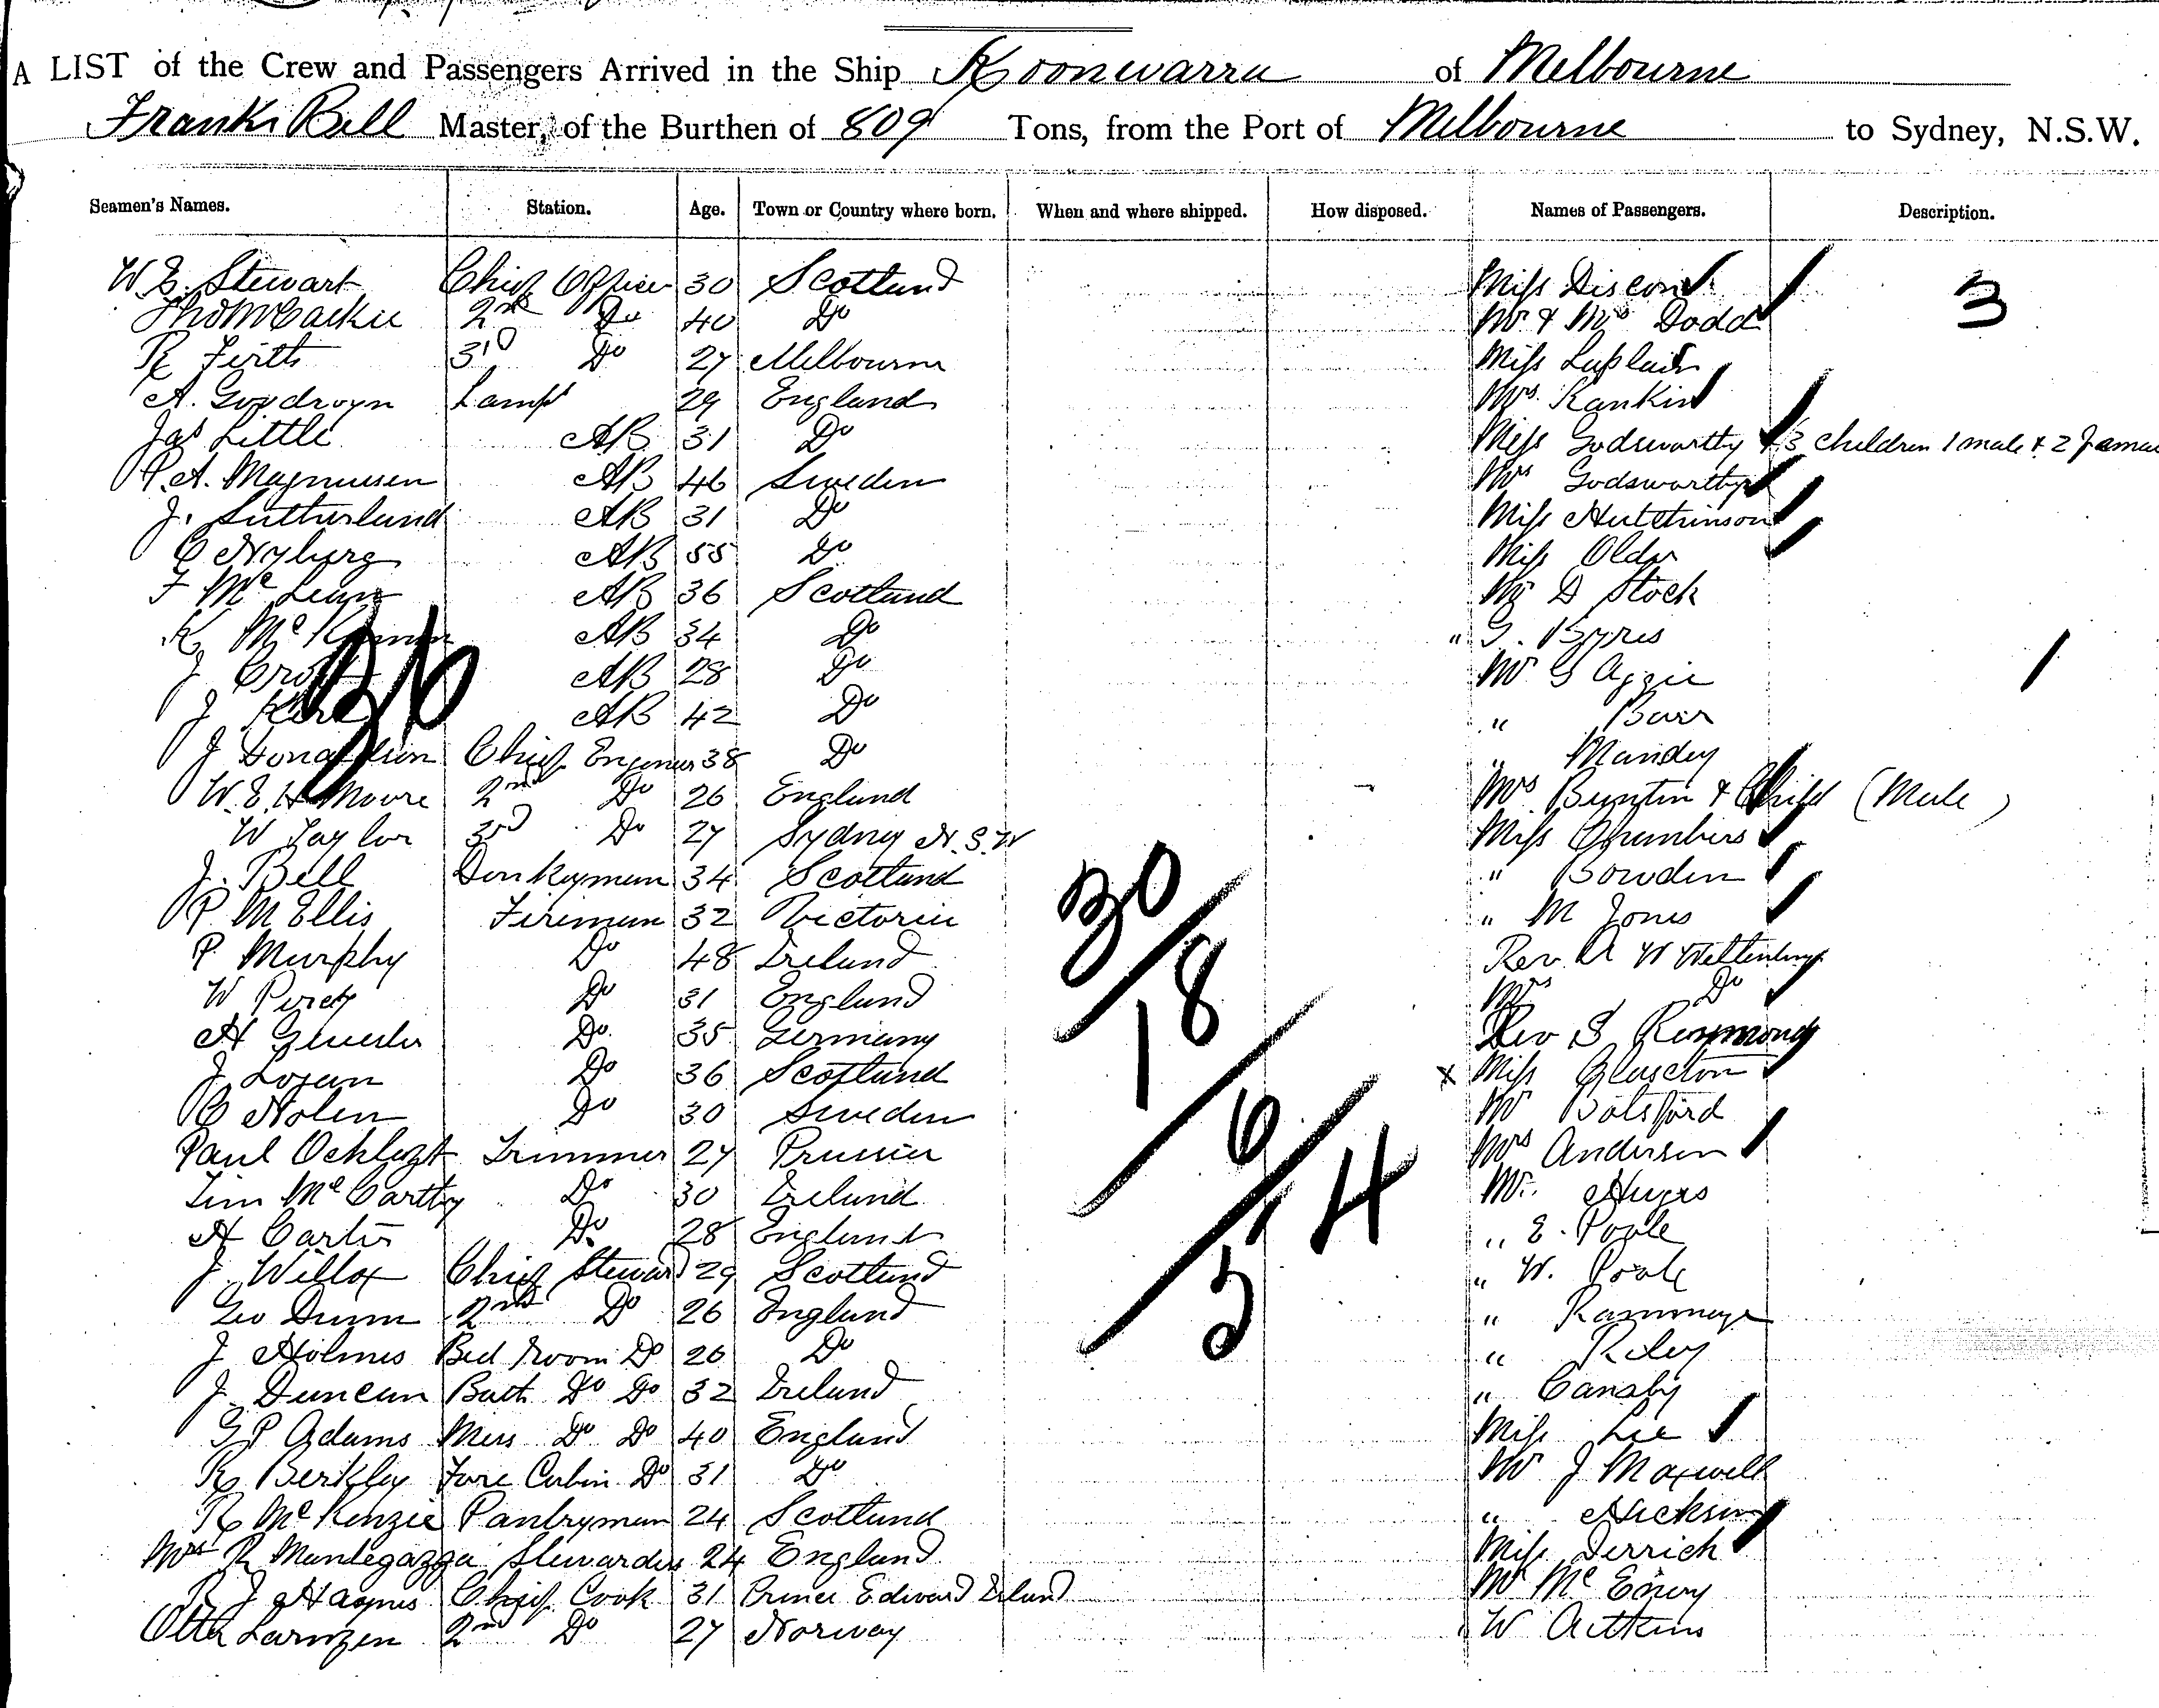 A LIST of the Crew and Passengers Arrived in the Ship Koonwarra of Melbourne
Frank Bell Master, of the Burthen of 809 Tons, from the Port of Melbourne to Sydney, N.S.W.
Seamen's Names. Station. Age. Town or Country where born. When and where shipped. How disposed. Names of Passengers. Description.
W. E. Stewart Chief Officer 30 Scotland Miss 3
2nd Do 40 Do Mr & Mrs Dodd
R Firth 3rd Do 27 Melbourne Miss
A. Lamps 29 England Mrs Rankin
Jas Little AB 31 Do Miss Godsworthy & 3 Children 1 male & 2
P. A. Magnusen AB 46 Sweden Mrs Godsworthy
J. Sutherland AB 31 Do Miss Hutchinson
C Nyberg AB 55 Do Miss
F McLean AB 36 Scotland Mr D Stock
K AB 34 Do " G. Byres
J AB 28 Do Mr G
J AB 42 Do " Barr
J Donaldson Chief Engineer 38 Do " Mandey
W. E. H Moore 2nd Do 26 England Mrs Buntin & Child (Male)
W Taylor 3rd Do 27 Sydney N.S.W Miss Chambers
J. Bell Donkeyman 34 Scotland " Bowden
P M Ellis Fireman 32 Victoria 30 " M Jones
P Murphy Do 48 Ireland 18 Rev A W
W Percy Do 31 England Mrs Do
H Do. 35 Germany Rev S
J Logan Do 36 Scotland x Miss
C Nolen Do 30 Sweden 6 Mr Botsford
Paul Trimmer 27 Prussia 14 Mrs Anderson
Tim McCarthy Do 30 Ireland Mr.
H Carter Do. 28 England " E. Poole
J Willox Chief Steward 29 Scotland 5 " W. Poole
Geo Dunn 2nd Do 26 England "
J Holmes Bed room Do 26 Do " Riley
J Duncan Bath Do Do 32 Ireland "
G P Adams Mess Do Do 40 England Miss Lee
R Berkley Fore Cabin Do 31 Do Mr J Maxwell
R McKenzie Pantryman 24 Scotland "
Mrs R Mantegazza Stewardess 24 England Miss Derrich
R J Haynes Chief Cook 31 Prince Edward Island Mr
2nd Do 27 Norway W Aitkins